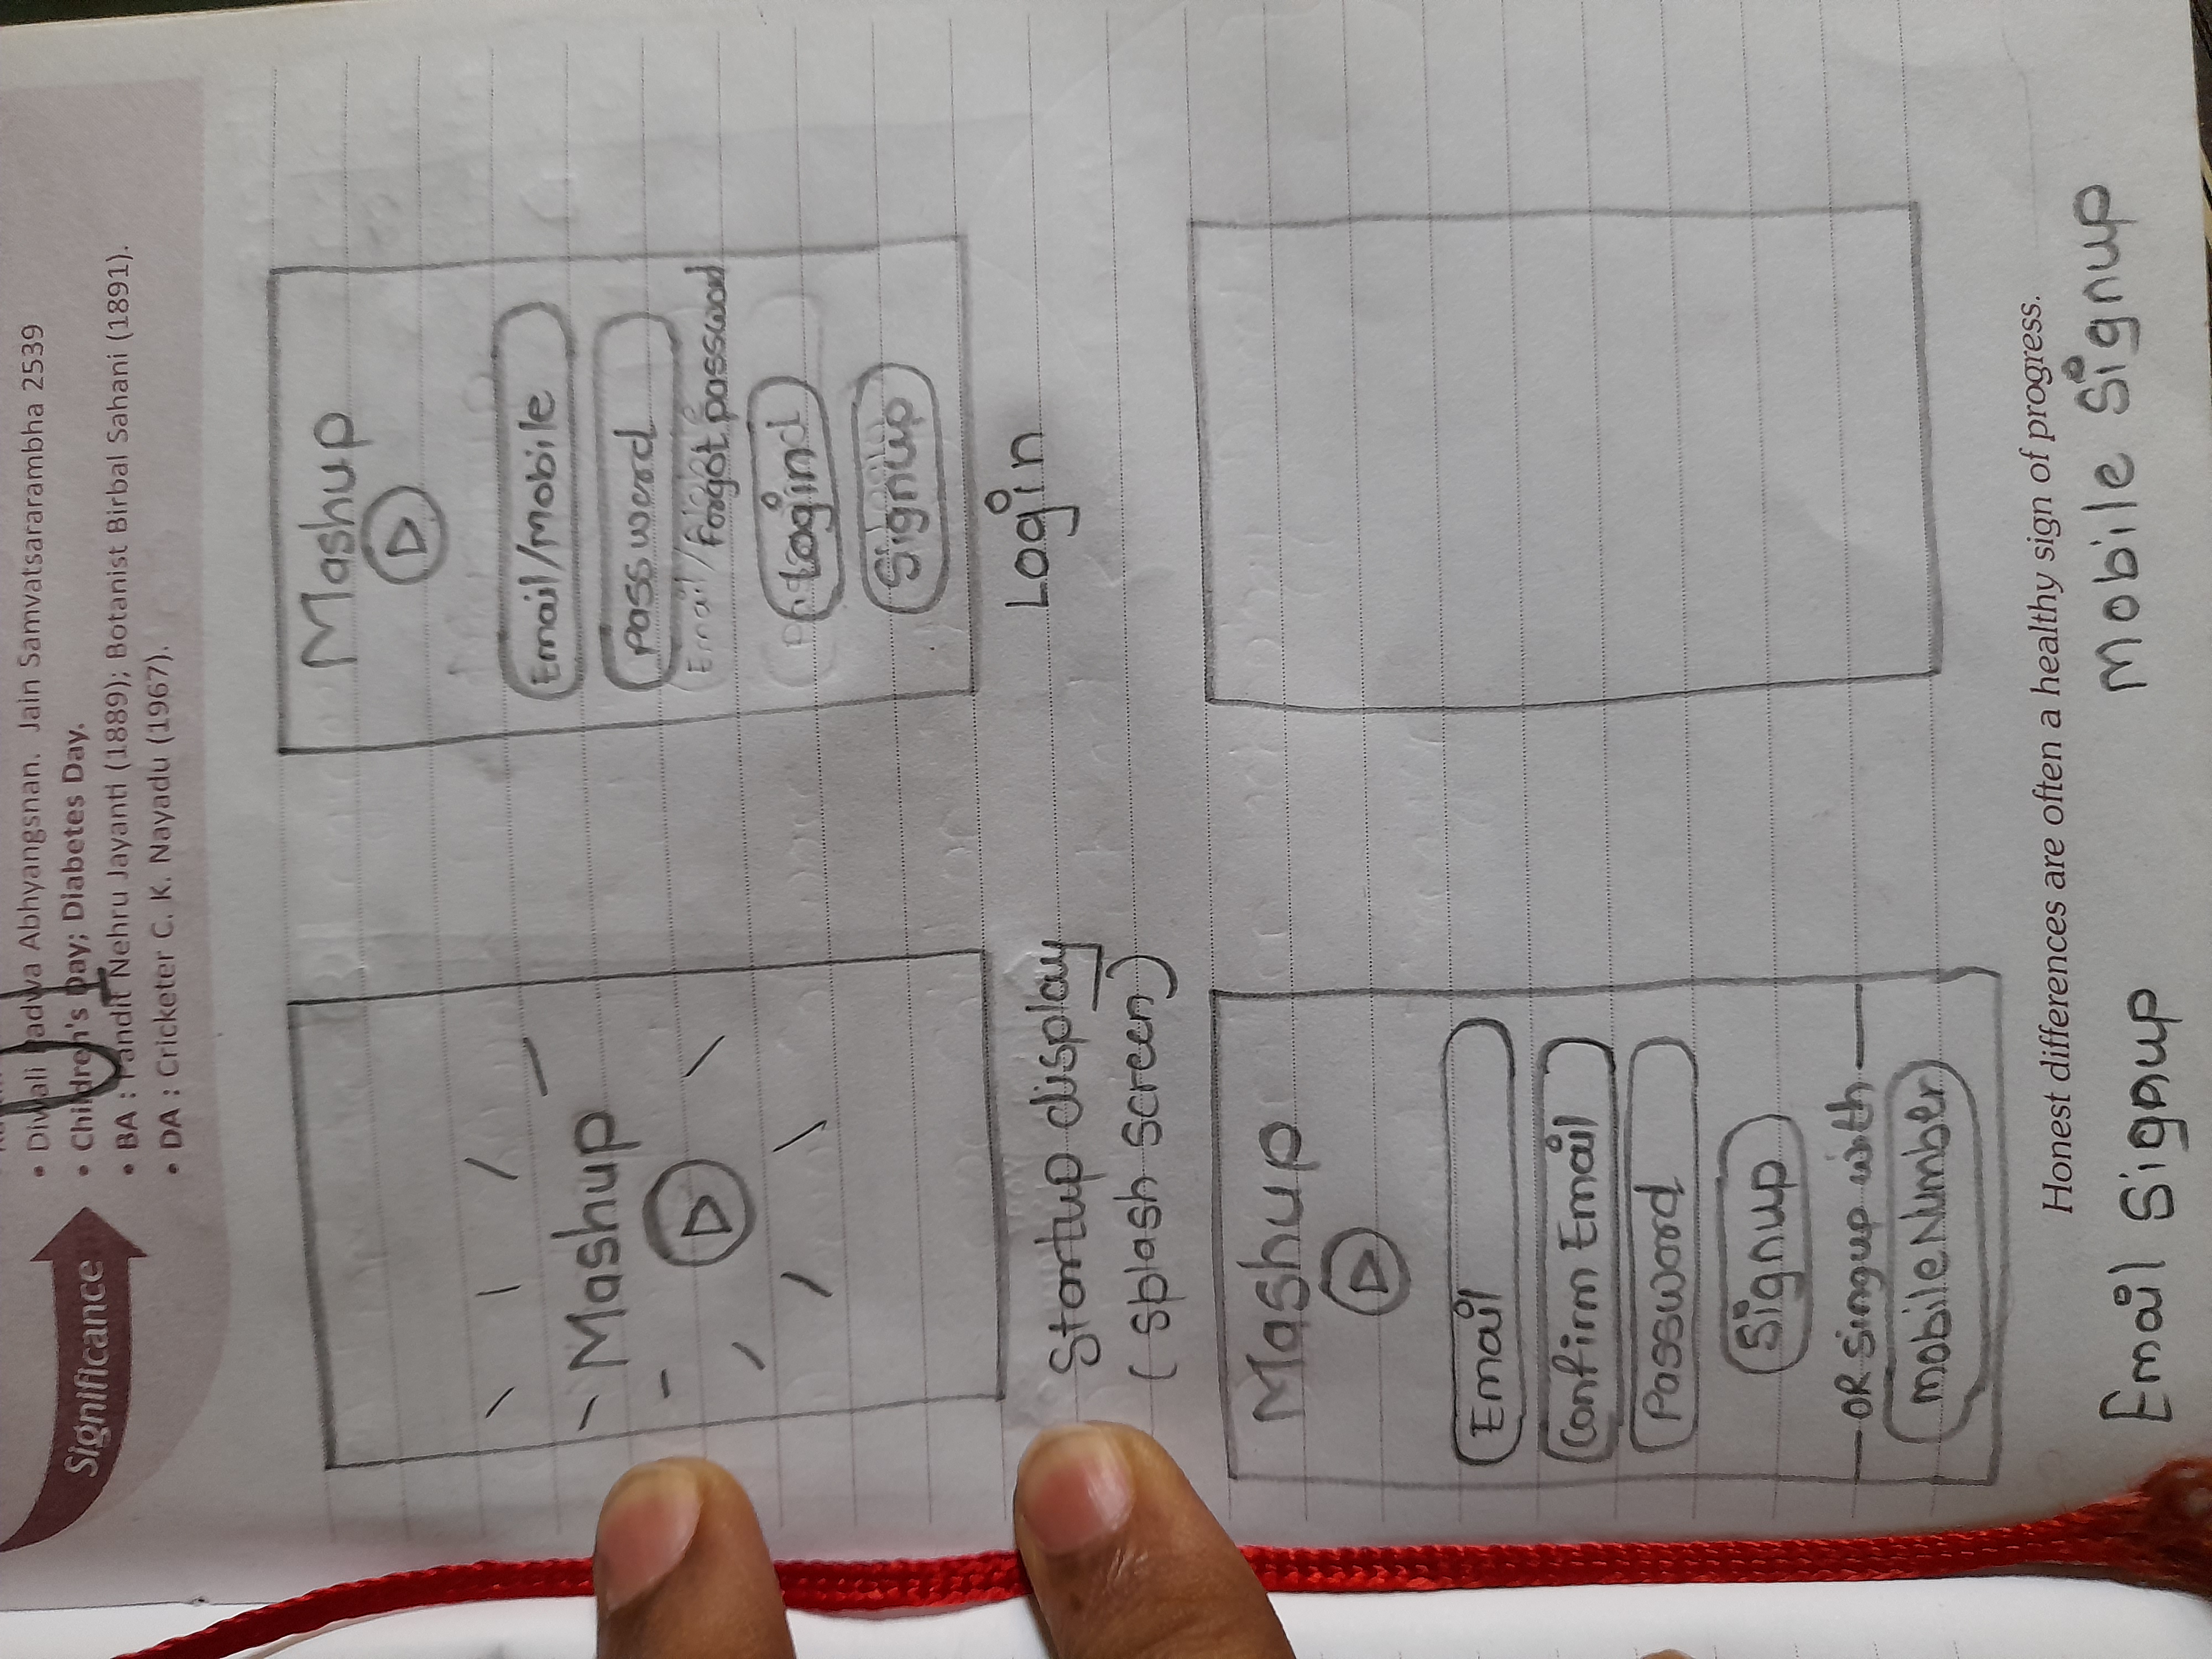 UI
Significance
• Diwali Padwa Abhyangsnan. Jain Samvatsararambha 2539
• Children's Day; Diabetes Day.
• BA : Pandit Nehru Jayanti (1889); Botanist Birbal Sahani (1891).
• DA : Cricketer C. K. Nayadu (1967).
Mashup
Startup display
(splash screen)
Mashup
Email/Mobile
Password
Forgot password
Login
Signup
Login
Mashup
Email
Confirm Email
Password
Signup
OR Singup with
mobile Number
Email Signup
Mobile Signup
Honest differences are often a healthy sign of progress.